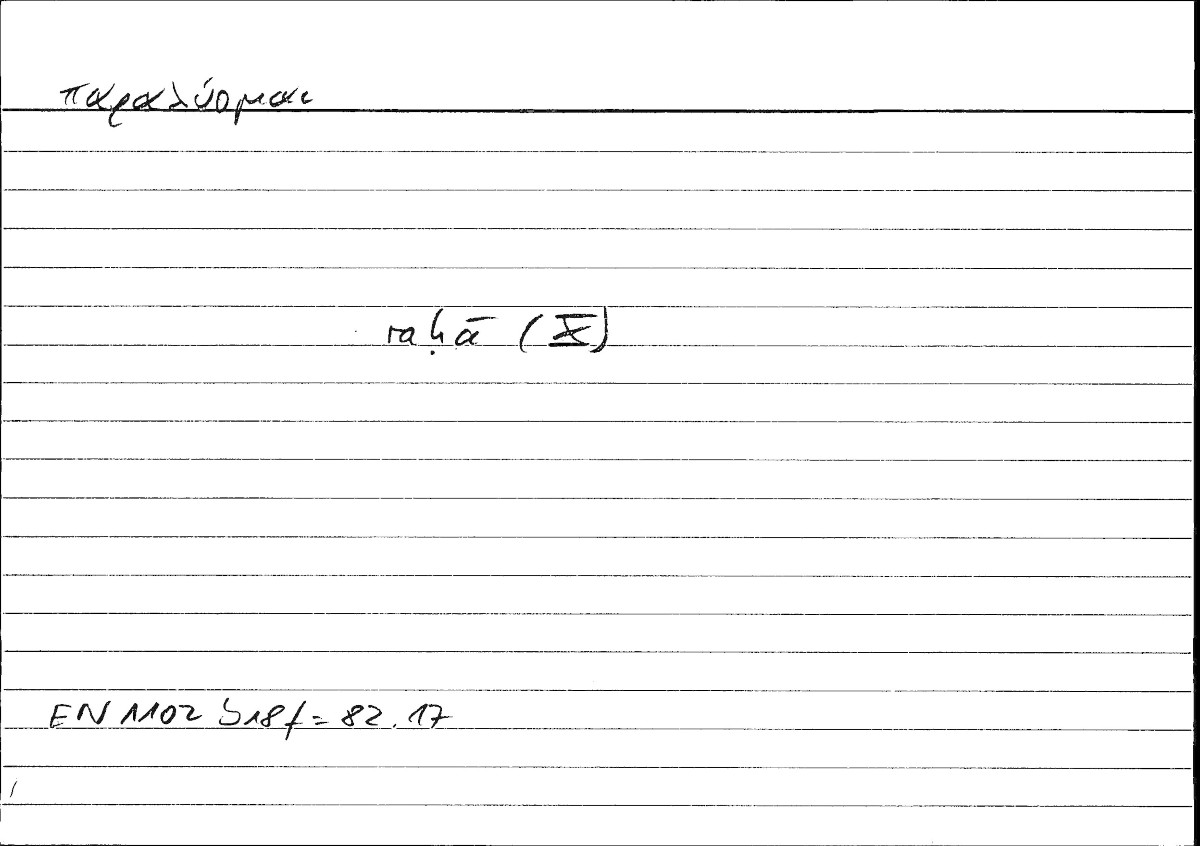 παραλύομαι
raḫā (X)
EN 1102 b18f = 82.17